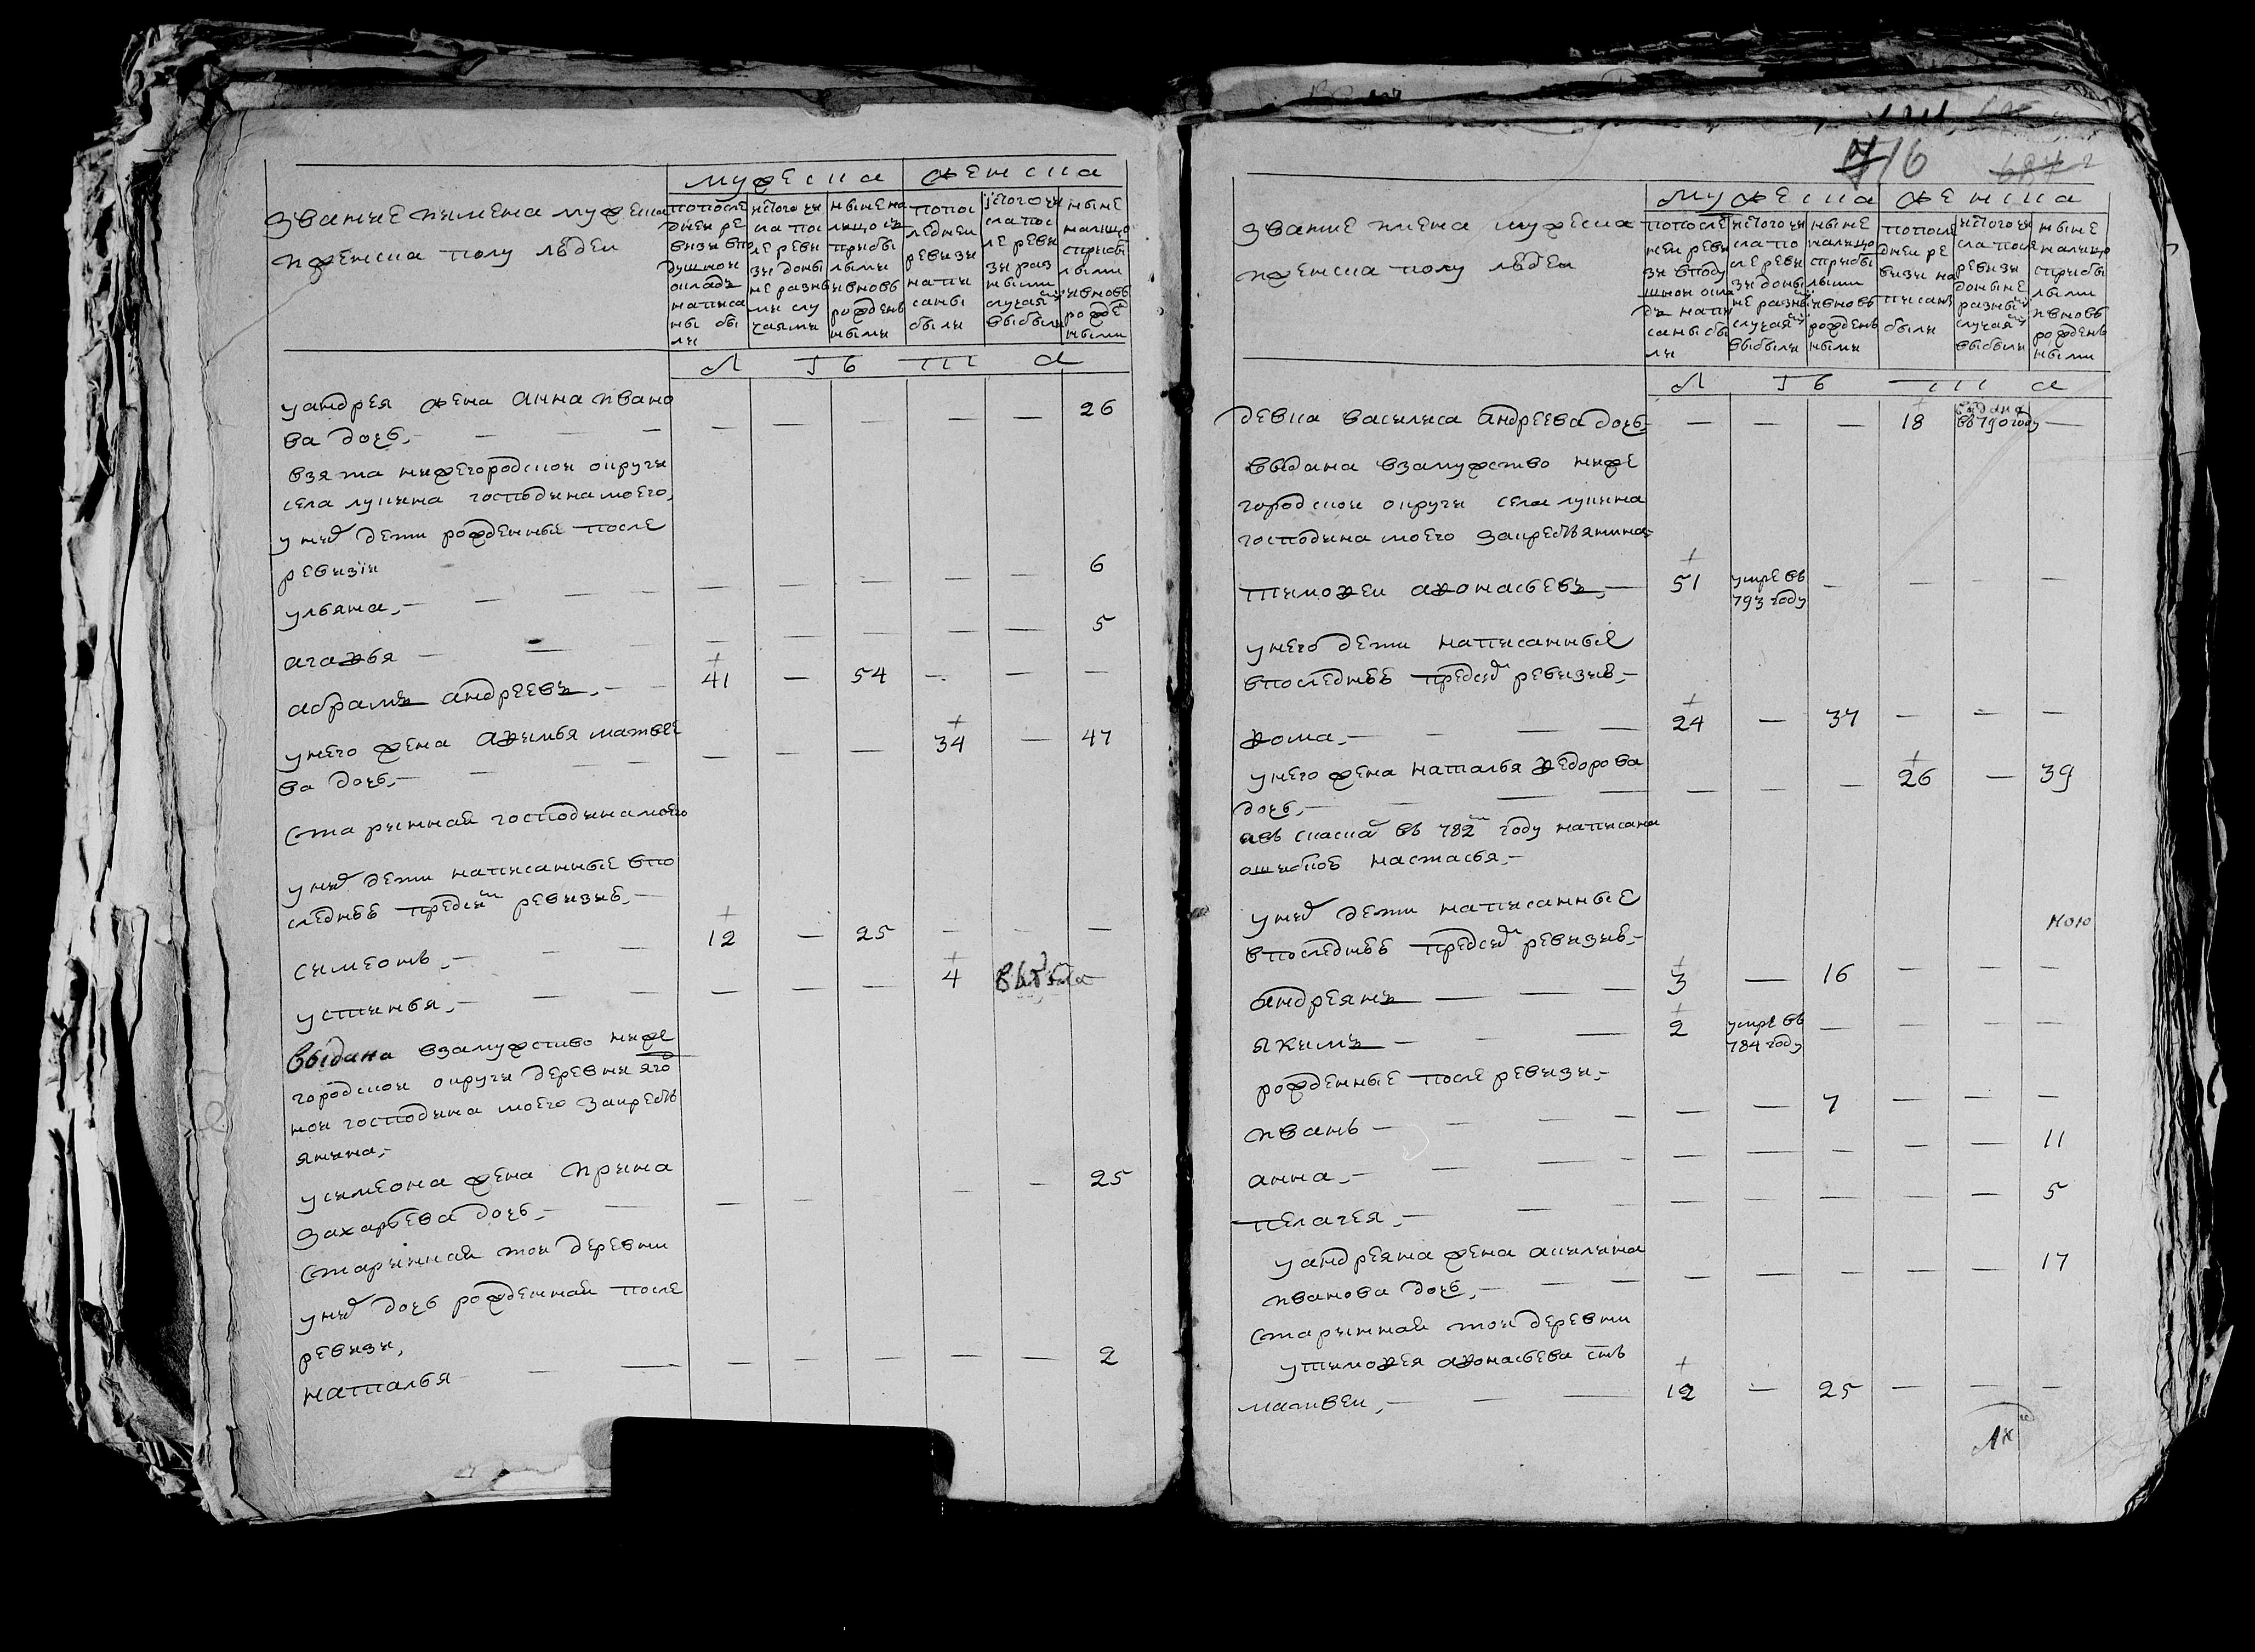 мужеска женска
звание и имена мужеска
и женска полу людеи
попосле
днеи ре
визи впо
душнои
окладъ
написа
ны бы
ли
исtого чи
сла пос
ле реви
зи доны
не разны
ми слу
чаями
ныне на
лицо съ
прибы
лыми
ивновь
рожденъ
ными
попос
леднеи
ревизи
напи
саны
были
істого чи
сла пос
ле реви
зи раз
ными
случаями
выбыли
ныне
налицо
сприбы
лыми
ивновь
рожде
ными
л ѣ т а
уандрея жена анна ивано
ва дочь — — — — — — 26
взята нижегородскои округи
села лукина господина моего
уних дети рожденные после
ревизіи
ульяна — — — — — — 6
агафья — — — — — — 5
абрамъ андреевъ 41 — 54 — — —
унего жена афимья матвее
ва дочь — — — 34 — 47
старинная господина моего
уних дети написанные впо
следнеи предсеи ревизие
симеонъ 12 — 25 — — —
устинья — — — 4 выдана
выдана взамужство ниже
городскои округи деревни яго
нои господина моего закресть
янина
усимеона жена ирина
захарьева дочь — — — — — 25
стариннаи тои деревни
уних дочь рожденнаи после
ревизи,
наталья — — — — — 2
716 687 2
мужеска женска
звание имена мужеска
и женска полу людеи
попосле
неи реви
зи вподу
шнои окла
дъ напи
саны бы
ли
истого чи
сла по
сле реви
зи доны
не разны
случаями
выбыли
ныне
налицо
сприбы
лыми
ивновь
рожденъ
ными
попосле
днеи ре
визи на
писанъ
были
истого чи
сла после
ревизи
доныне
разными
случаями
выбыли
ныне
налицо
сприбы
лыми
ивновь
рожденъ
ными
л ѣ т а
девка василиса андреева дочь — — — 18 выдана
въ 790 году —
выдана взамужство ниже
городскои округи села лукина
господина моего закрестьянина
тимофеи афонасьевъ 51 умре въ
793 году — — — —
унего дети написанные
впоследнеи предсеи ревизие
фома 24 — 37 — — —
унего жена наталья федорова
дочь — — — 26 — 39
авъ сказкаи въ 782м году написана
ошибкою настасья
уних дети написанные
впоследнеи предсеи ревизие
андреянъ 3 — 16 — — —
якимъ 2 умре въ
784 году — — — —
рожденные после ревизи
иванъ — — 7 — — —
анна — — — — — 11
пелагея — — — — — 5
уандреяна жена акилина
иванова дочь — — — — — 17
стариннаи тои деревни
утимофея афонасьева сынъ
матвеи 12 — 25 — — —